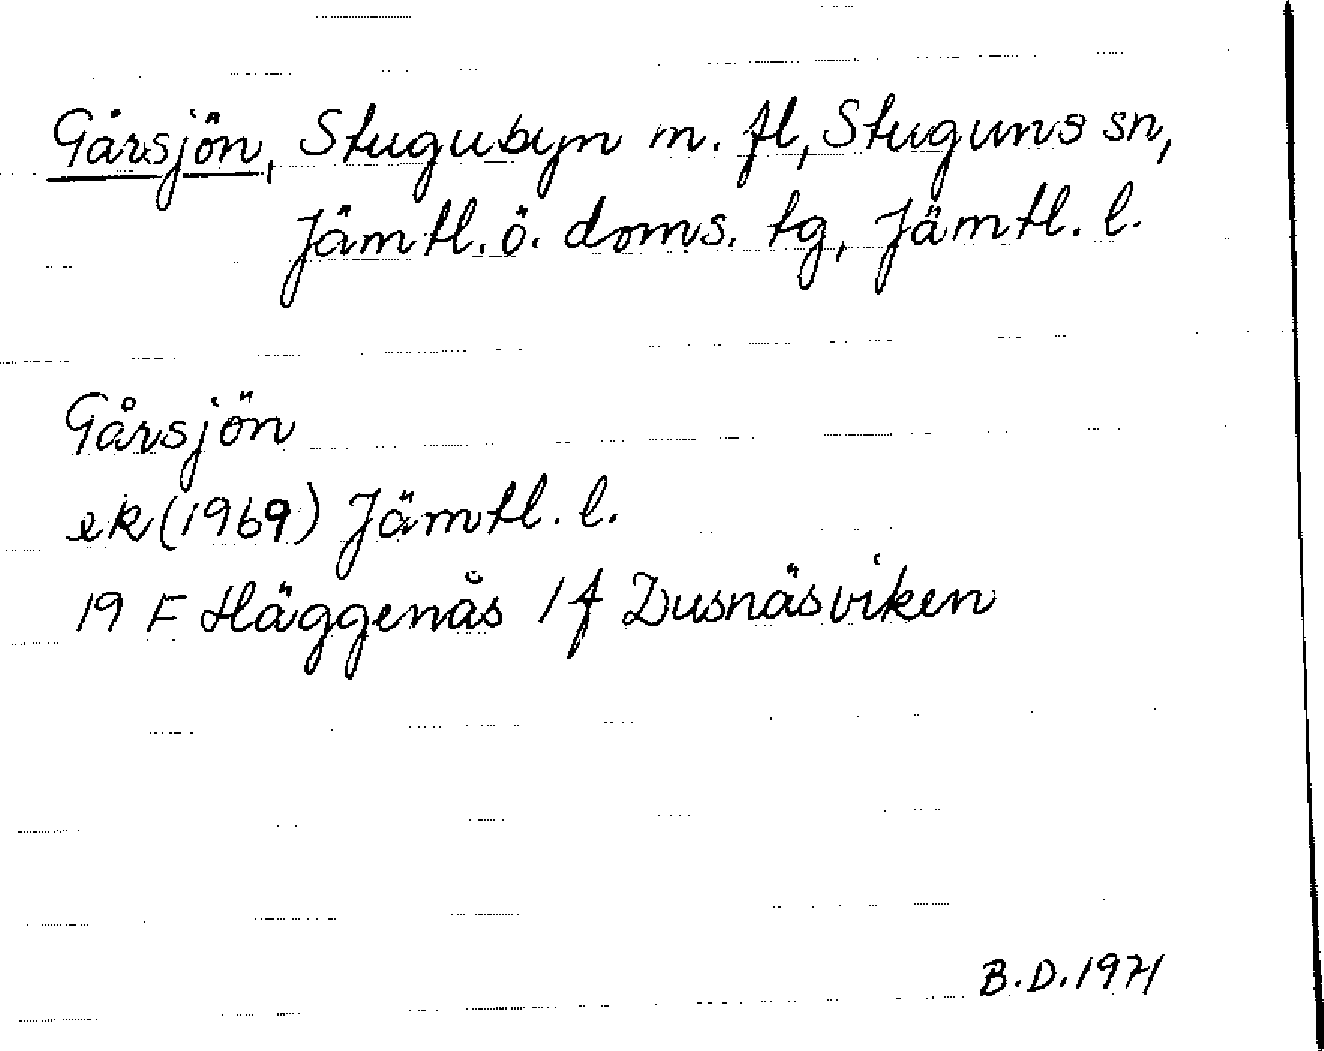 Gårsjön, Stugubyn m. fl, Stuguns sn,
Jämtl. ö. doms. tg, Jämtl. l.
Gårsjön
ek (1969) Jämtl. l.
19 F Häggenås 1 f Dusnäsviken
B.D. 1971